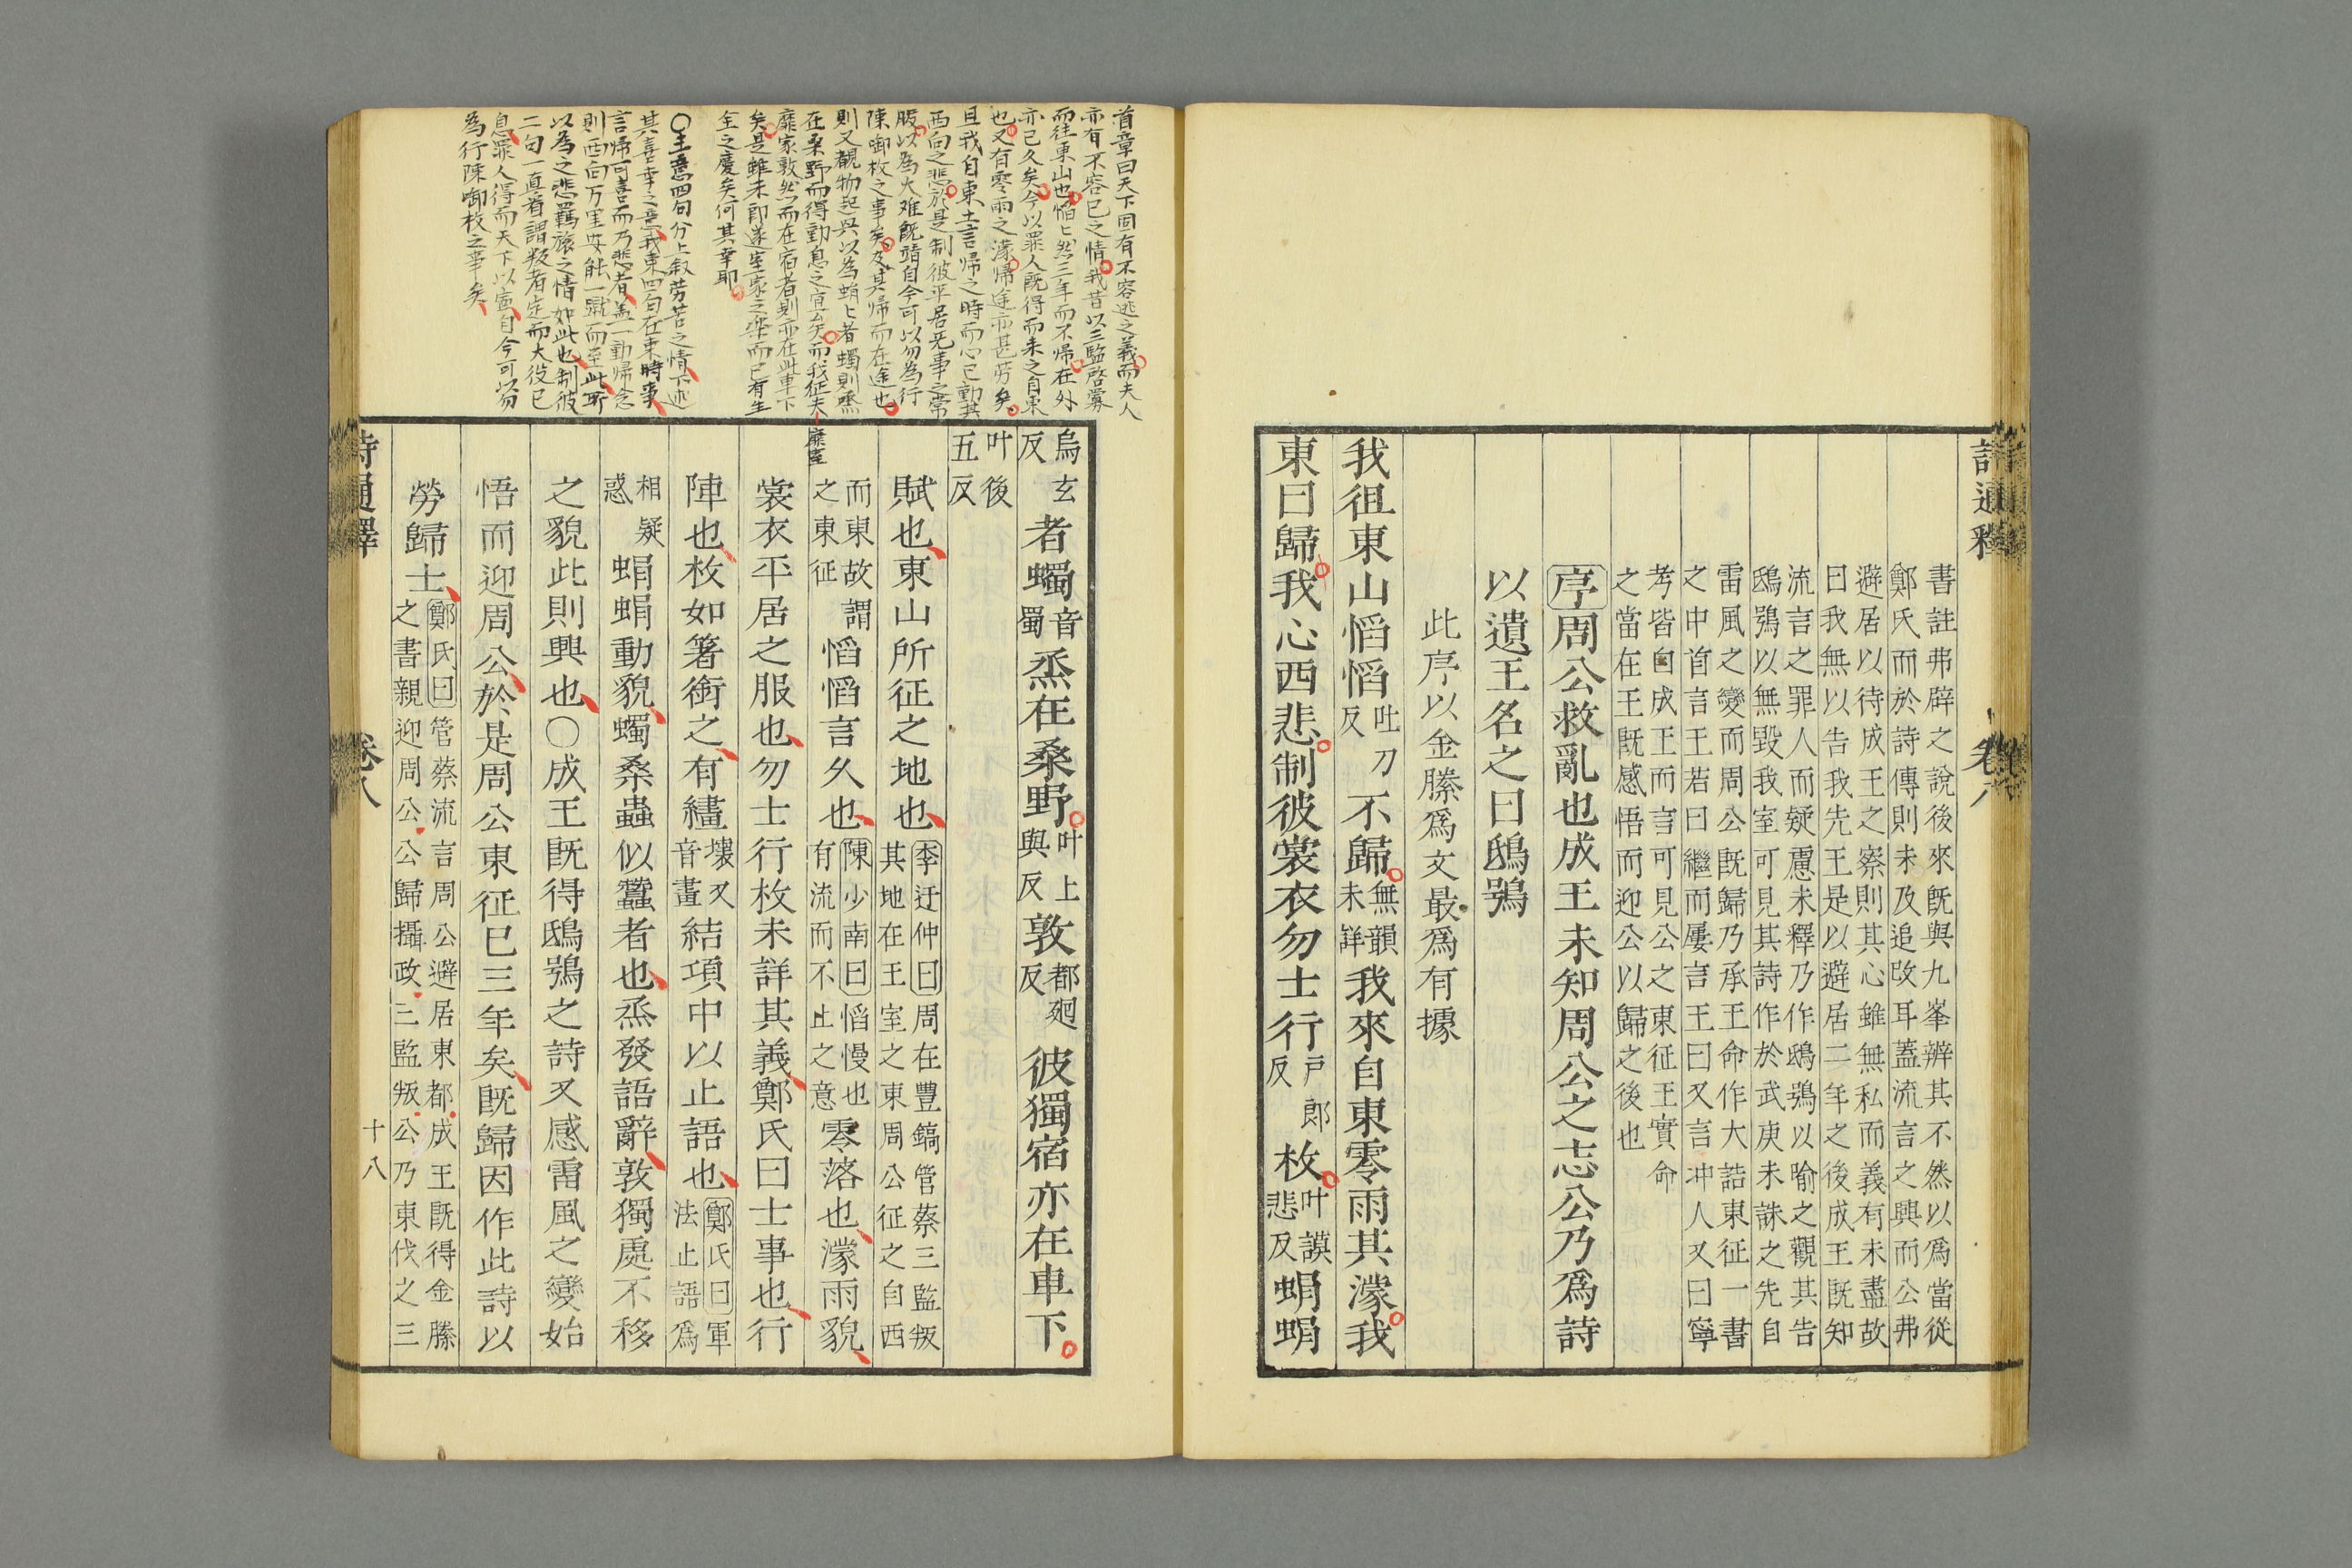 詩通釋
卷八
書註弗辟之說後來既與九峯辨其不然以爲當從
鄭氏而於詩傳則未及追改耳蓋流言之興而公弗
避居以待成王之察則其心雖無私而義有未盡故
曰我無以告我先王是以避居二年之後成王既知
流言之罪人而疑慮未釋乃作鴟鴞以喻之觀其告
鴟鴞以無毀我室可見其詩作於武庚未誅之先自
雷風之變而周公既歸乃承王命作大誥東征一書
之中首言王若曰繼而屢言王曰又言冲人又曰寧
考皆自成王而言可見公之東征王實命
之當在王既感悟而迎公以歸之後也
序周公救亂也成王未知周公之志公乃爲詩
以遺王名之曰鴟鴞
此序以金縢爲文最爲有據
我徂東山慆慆吐刀反不歸無韻未詳我來自東零雨其濛我
東曰歸我心西悲制彼裳衣勿士行戶郎反枚叶謨悲反蜎蜎
烏玄反者蠋音蜀烝在桑野叶上與反敦都廻反彼獨宿亦在車下
叶後五反
賦也東山所征之地也李迂仲曰周在豐鎬管蔡三監叛其地在王室之東周公征之自西
而東故謂之東征慆慆言久也陳少南曰慆慢也有流而不止之意零落也濛雨貌
裳衣平居之服也勿士行枚未詳其義鄭氏曰士事也行
陣也枚如箸銜之有繣壞又音畫結項中以止語也鄭氏曰軍法止語爲
相疑惑蜎蜎動貌蠋桑蟲似蠶者也烝發語辭敦獨處不移
之貌此則興也○成王既得鴟鴞之詩又感雷風之變始
悟而迎周公於是周公東征已三年矣既歸因作此詩以
勞歸士鄭氏曰管蔡流言周公避居東都成王既得金縢之書親迎周公公歸攝政三監叛公乃東伐之三
詩通釋
卷八
十八
首章曰天下固有不容逃之義而夫人
亦有不容已之情我昔以三監啓釁
而往東山也慆〻然三年而不歸在外
亦已久矣今以罪人既得而來之自東
也又有零雨之濛歸途亦甚劳矣
且我自東土言歸之時而心已動其
西向之悲於是制彼平居无事之常
服以為大难既靖自今可以勿為行
陳啣枚之事矣及其歸而在途也
則又覩物起興以為蜎〻者蠋則烝
在桑野而得動息之宜矣而我征夫
靡室
靡家敦然而在宿者則亦在此車下
矣是雖未即遂室家之樂而已有生
全之慶矣何其幸耶
○主意四句分上叙劳苦之情下述
其喜幸之意我東四句在東時事
言歸可喜而乃悲者盖一動歸念
則西向万里安能一蹴而至此所
以為之悲羈旅之情如此也制彼
二句一直看謂叛者定而大役已
息罪人得而天下以寧自今可以勿
為行陳啣枚之事矣